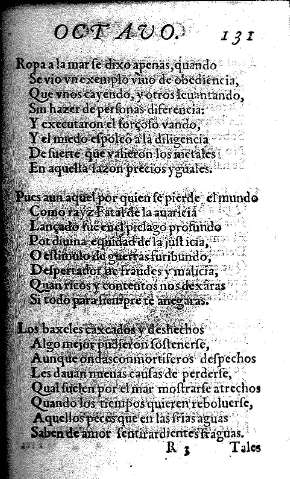 OCTAVO. 131
Ropa a la mar se dixo apenas, quando
Se vio vn exemplo viuo de obediencia,
Que vnos cayendo, y otros leuantando,
Sin hazer de personas diferencia:
Y executaron el forçoso vando,
Y el miedo espoleó a la diligencia
De suerte que valieron los metales
En aquella sazon precios yguales.
Pues aun aquel por quien se pierde el mundo
Como rayz fatal de la auaricia
Lançado fue en el pielago profundo
Por diuina equidad de la justicia,
O estimulo de guerras furibundo,
Despertador de fraudes y malicia,
Quan ricos y contentos nos dexáras
Si todo para siempre te anegaras.
Los baxeles caxcados y deshechos
Algo mejor pudieron sostenerse,
Aunque ondas con mortiferos despechos
Les dauan nueuas causas de perderse,
Qual suelen por el mar mostrarse atrechos
Quando los tiempos quieren reboluerse,
Aquellos peces que en las frias aguas
Saben de amor sentir ardientes fraguas.
R 3 Tales